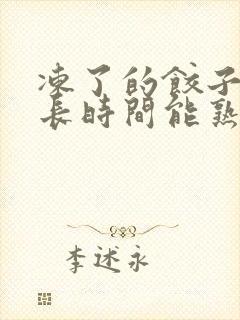 凍了的餃子
長時間能熟
李述永